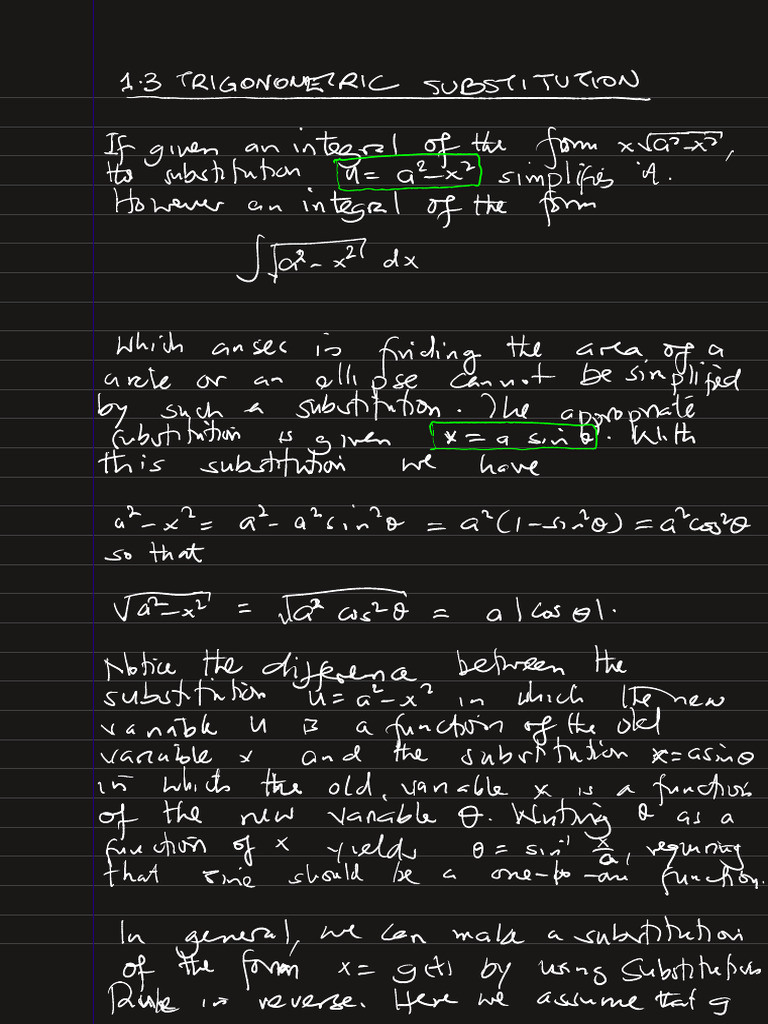 1.3 TRIGONOMETRIC SUBSTITUTION
If given an integral of the form x√(a²-x²),
the substitution u = a²-x² simplifies it.
However an integral of the form
∫√(a²-x²) dx
which arises in finding the area of a
circle or an ellipse cannot be simplified
by such a substitution. The appropriate
substitution is given x = a sin θ. With
this substitution we have
a²-x² = a²-a²sin²θ = a²(1-sin²θ) = a²cos²θ
so that
√(a²-x²) = √(a² cos²θ) = a|cos θ|.
Notice the difference between the
substitution u = a²-x² in which the new
variable u is a function of the old
variable x and the substitution x = a sin θ
in which the old variable x is a function
of the new variable θ. Writing θ as a
function of x yields θ = sin⁻¹ x/a, requiring
that sine should be a one-to-one function.
In general, we can make a substitution
of the form x = g(t) by using Substitution
Rule in reverse. Here we assume that g